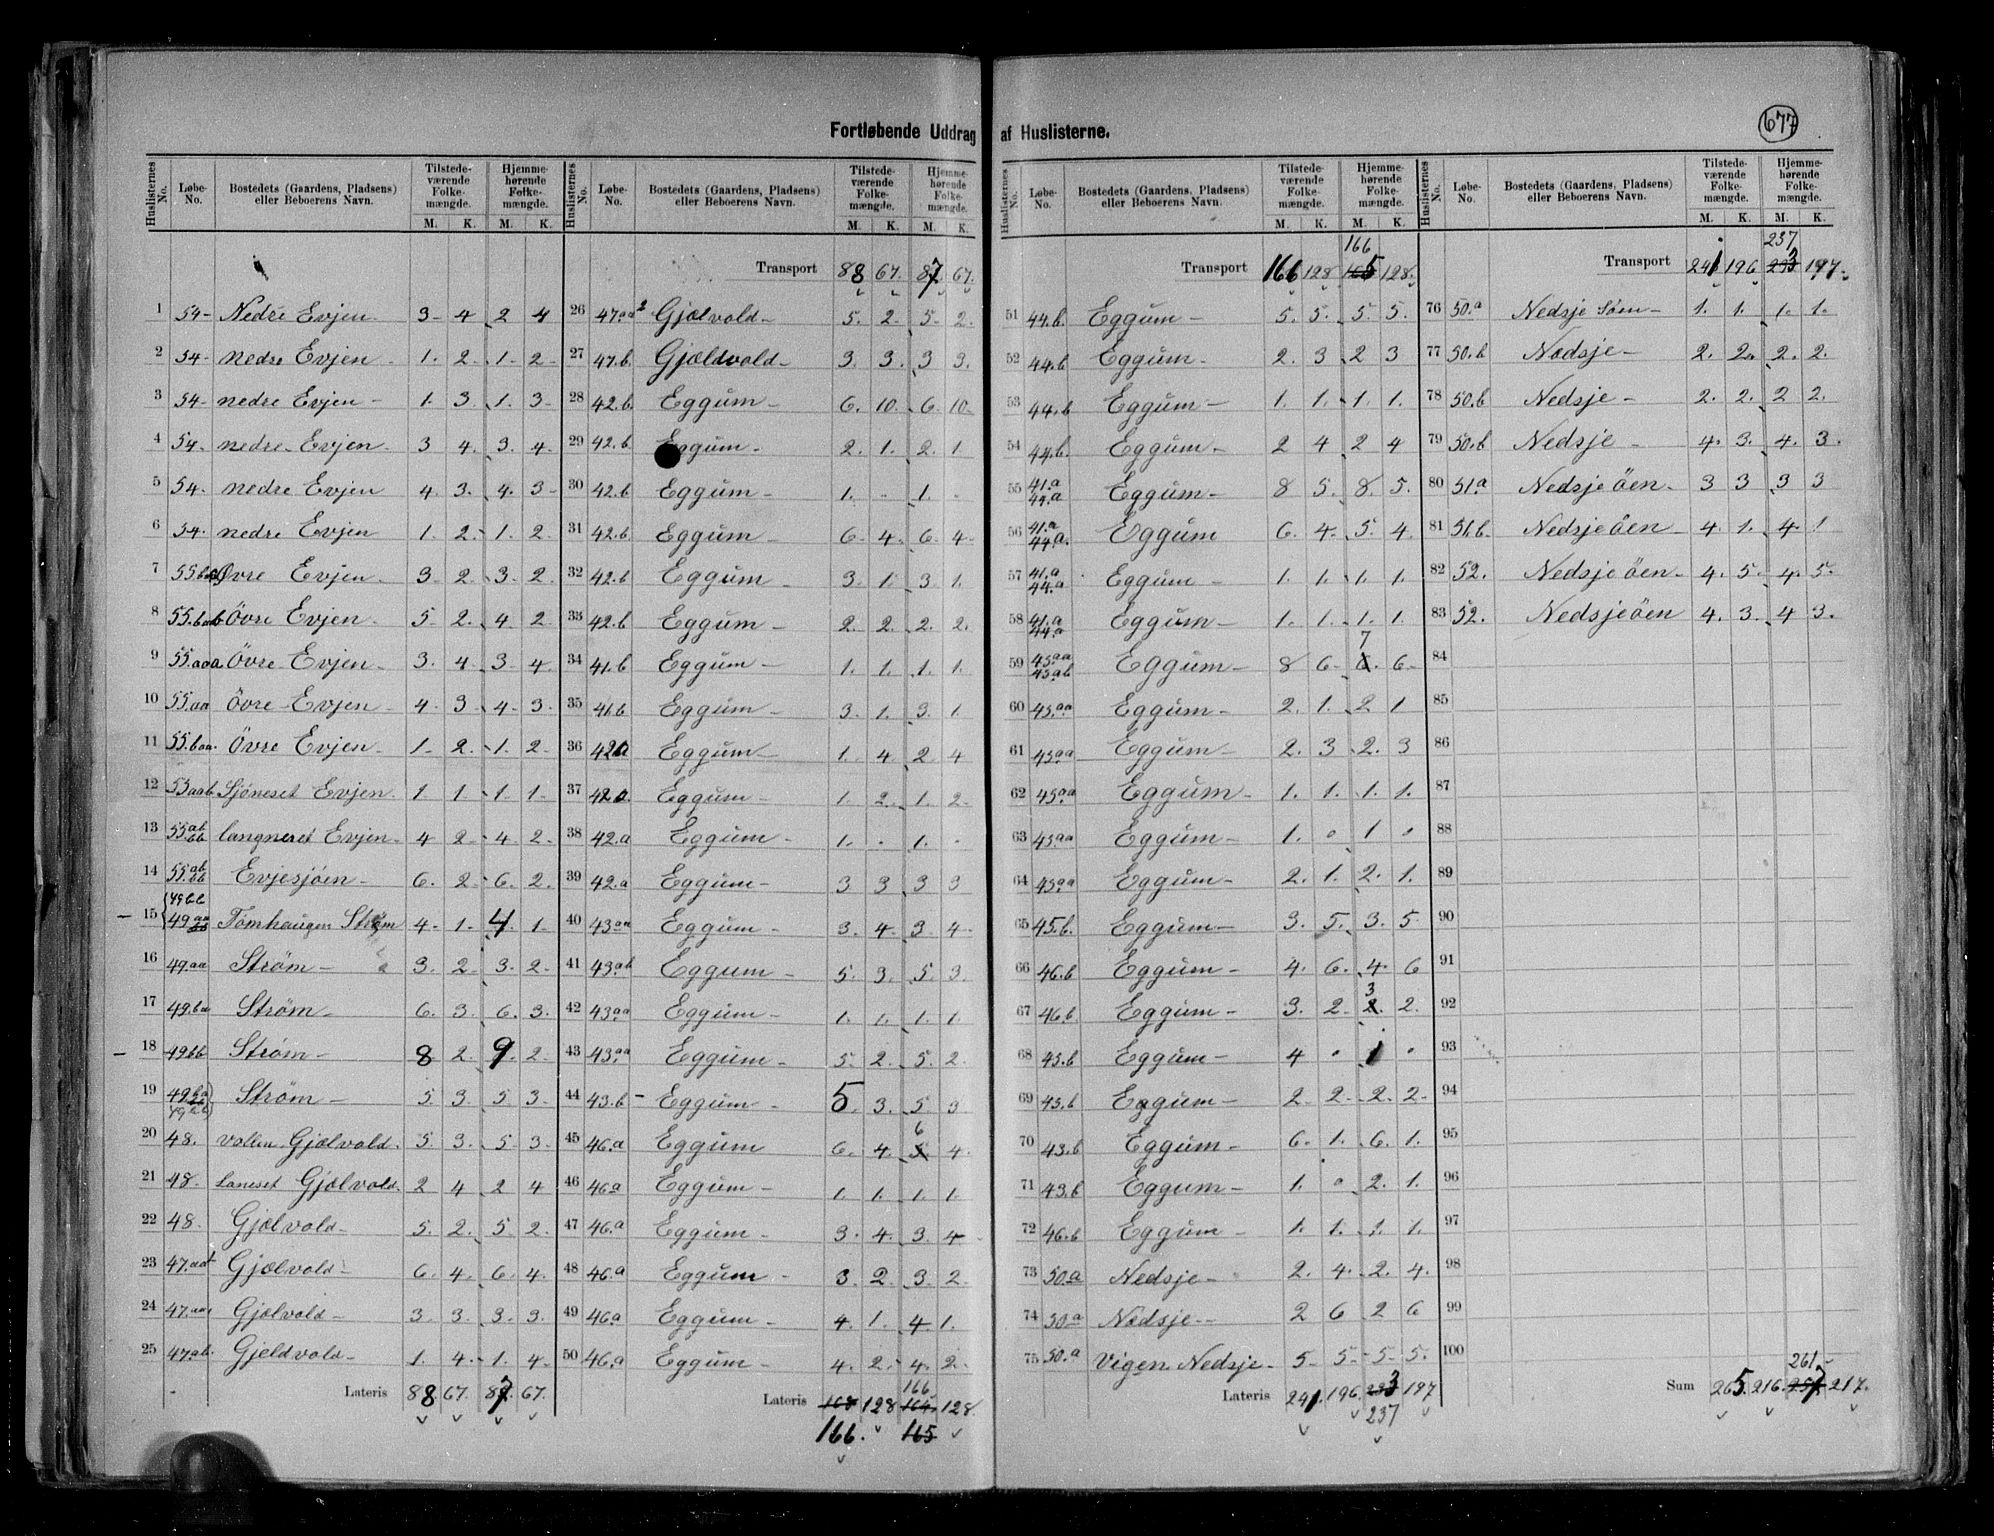 677
Fortløbende Uddrag af Huslisterne.
Huslisternes No. | Løbe-No. | Bostedets (Gaardens, Pladsens) eller Beboerens Navn. | Tilstedeværende Folkemængde. M. K. | Hjemmehørende Folkemængde. M. K.
1 54- Nedre Evjen. 3- 4 2 4
2 54- nedre Evjen - 1. 2. 1. 2-
3 54- nedre Evjen - 1. 3. 1. 3-
4 54. nedre- Evjen. 3 4. 3. 4.
5 54. nedre Evjen 4. 3. 4. 3-
6 54. nedre Evjen 1. 2. 1. 2
7 Øvre Evjen. 3. 2. 3. 2.
8 55.bab Övre Evjen. 5 2. 4. 2
9 55.aaa Övre Evjen. 3. 4. 3. 4.
10 55.aa Övre-Evjen - 4. 3 4. 3.
11 55.baa. Övre Evjen - 1. 2. 1. 2-
12 53aab Sjöneset Evjen. 1. 1. 1. 1.
13 55ab bb langneset Evjen. 4 2. 4. 2
14 55.ab bb Evjesjøen - 6. 2 6. 2.
15 49bb 49aa Tömhaugen Strøm 4. 1. 4. 1.
16 49aa Strøm - 3. 2. 3. 2.
17 49.ba Strøm - 6. 3. 6. 3.
18 49bb Strøm - 8 2. 9. 2.
19 49ba 49bb Strøm - 5 3. 5 3.
20 48. Gjølvold. 5 3. 5 3.
21 48. Gjølvold. 2 4 2 4
22 48. Gjølvold - 5. 2. 5 2.
23 47.aa Gjølvold - 6. 4. 6. 4.
24 47.aa Gjølvold - 3. 3. 3. 3.
25 47.ab. Gjeldvold - 1. 4. 1. 4.
Lateris 88 67. 87. 67.
Huslisternes No. | Løbe-No. | Bostedets (Gaardens, Pladsens) eller Beboerens Navn. | Tilstedeværende Folkemængde. M. K. | Hjemmehørende Folkemængde. M. K.
Transport 88 67. 87 67.
26 47.aa Gjølvold - 5. 2. 5. 2.
27 47.b. Gjøldvold - 3. 3. 3 3.
28 42.b. Eggum - 6. 10. 6. 10.
29 42.b Eggum - 2. 1. 2. 1
30 42.b Eggum - 1. - 1. -
31 42.b Eggum - 6. 4. 6. 4.
32 42.b Eggum - 3. 1. 3 1.
33 42.b Eggum - 2. 2. 2. 2.
34 41.b Eggum - 1. 1. 1. 1.
35 41.b Eggum - 3. 1. 3. 1.
36 42a Eggum - 1. 4 2 4
37 42a Eggum - 1. 2. 1. 2.
38 42.a Eggum - 1. - 1. -
39 42.a Eggum - 3 3 3 3
40 43aa Eggum - 3. 4. 3 4.
41 43ab Eggum - 5. 3. 5. 3.
42 43aa Eggum - 1. 1. 1. 1.
43 43.aa Eggum - 5. 2. 5. 2.
44 43.b- Eggum - 5 3. 5. 3
45 46.a Eggum 6. 4. 6 5 4.
46 46a Eggum - 1. 1. 1. 1.
47 46.a Eggum - 3. 4. 3. 4-
48 46.a Eggum - 3. 2. 3. 2.
49 46.a Eggum - 4. 1. 4. 1.
50 46.a Eggum - 4. 2. 4. 2.
Lateris 168 128 166 164. 128.
166. 165
Huslisternes No. | Løbe-No. | Bostedets (Gaardens, Pladsens) eller Beboerens Navn. | Tilstedeværende Folkemængde. M. K. | Hjemmehørende Folkemængde. M. K.
166
Transport 166 128 165 128.
51 44.b. Eggum - 5. 5. 5 5.
52 44.b Eggum - 2. 3 2 3
53 44.b Eggum - 1. 1. 1. 1.
54 44.b. Eggum - 2 4 2 4
55 41.a 44.a Eggum - 8 5. 8. 5.
56 41.a 44.a. Eggum 6. 4. 5. 4
57 41.a 44.a Eggum - 1. 1. 1. 1.
58 41.a 44.a Eggum - 1. 1. 1. 1.
59 45.aa 45.ab Eggum - 8 6. 7 6. 6.
60 45.aa Eggum - 2. 1. 2 1
61 45.aa Eggum - 2. 3 2. 3
62 45.aa Eggum - 1. 1. 1. 1.
63 45.aa Eggum - 1. 0 1 0
64 45.aa Eggum - 2. 1. 2. 1.
65 45.b. Eggum - 3. 5. 3. 5
66 46.b Eggum - 4. 6. 4. 6
67 46.b Eggum - 3. 2. 3 2. 2.
68 45.b Eggum - 4 0 1 0
69 45.b Eggum - 2. 2. 2. 2.
70 43.b Eggum - 6. 1. 6. 1.
71 43.b Eggum - 1. 0 2. 1.
72 46.b Eggum - 1. 1. 1. 1.
73 50.a Nedsje - 2. 4. 2. 4.
74 50.a Nedsje - 2 6 2 6
75 50.a Vigen Nedsje - 5- 5- 5- 5.
Lateris 241. 196 233 197
237
Huslisternes No. | Løbe-No. | Bostedets (Gaardens, Pladsens) eller Beboerens Navn. | Tilstedeværende Folkemængde. M. K. | Hjemmehørende Folkemængde. M. K.
237
Transport 241 196 233 197.
76 50.a Nedsje Søen - 1. 1. 1. 1.
77 50.b Nedsje - 2. 2. 2. 2.
78 50.b Nedsje - 2. 2. 2 2.
79 50.b Nedsje - 4. 3. 4. 3.
80 51.a Nedsje öen - 3 3 3 3
81 51.b Nedsjeöen 4. 1. 4. 1
82 52. Nedsje öen - 4. 5. 4. 5.
83 52. Nedsjeöen 4. 3. 4 3.
84
85
86
87
88
89
90
91
92
93
94
95
96
97
98
99
100
261.
Sum 265. 216. 257. 217.